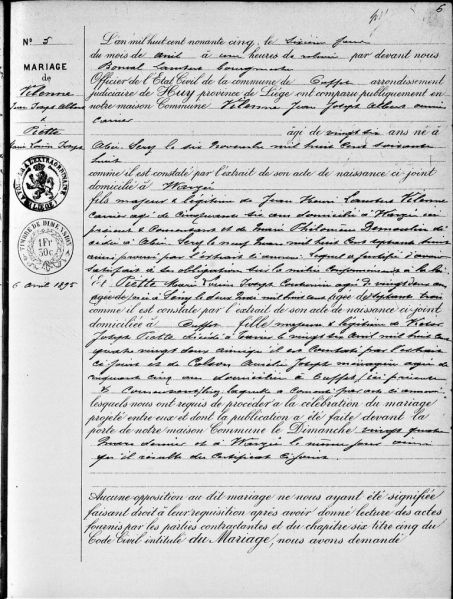 6
N° 5
MARIAGE
de
Vilenne
Jean Joseph Albert
&
Piette
Marie Louise Josèphe
TIMBRE DE DIMENSION
1 Fr
50c
6 avril 1895
L'an mil huit cent nonante cinq, le sixième jour
du mois d avril à un heures de relevée par devant nous
bourgmestre
Officier de l'Etat Civil de la commune de arrondissement
judiciaire de Huy province de Liège ont comparu publiquement en
notre maison Commune Vilenne Jean Joseph Albert ouvrier
carrier
âgé de vingt six ans né à
le six Novembre mil huit cent soixante
huit
comme il est constaté par l'extrait de son acte de naissance ci-joint
domicilié à Warzée
fils majeur & légitime de Jean Henri Lambert Vilenne
carrier âgé de cinquante six ans domicilié à Warzée ici
présent & consentant et de Marie Philomène
le neuf mil huit cent septante
ainsi prouvé par l'extrait ci annexé. Lequel a justifié d'avoir
satisfait à ses obligations sur la milice conformément à la loi
Et Piette Marie Louise Joseph Couturière âgée de vingt deux ans
née à le deux mil huit cent septante trois
comme il est constaté par l'extrait de son acte de naissance ci-joint
domiciliée à fille majeure & légitime de Victor
Joseph Piette décédé à le vingt six avril mil huit cent
quatre vingt deux ainsi qu'il est constaté par l'extrait
ci joint et de Joseph ménagère âgée de
cinquante cinq ans domiciliée à ici présente
& consentante
lesquels nous ont requis de procéder à la célébration du mariage
projeté entre eux et dont la publication a été faite devant la
porte de notre maison Commune le Dimanche vingt quatre
Mars dernier et à Warzée le même jour ainsi
qu'il résulte du certificat ci joint
Aucune opposition au dit mariage ne nous ayant été signifiée
faisant droit à leur requisition après avoir donné lecture des actes
fournis par les parties contractantes et du chapitre six titre cinq du
Code Civil intitulé du Mariage, nous avons demandé